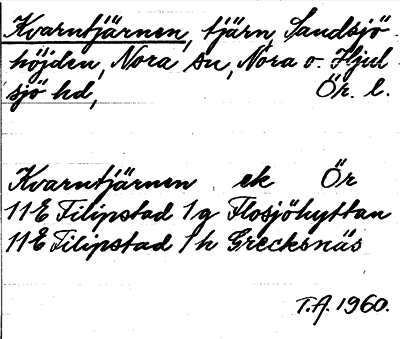 Kvarntjärnen, tjärn, Sandsjö
höjden, Nora sn, Nora o. Hjul
sjö hd, Ör. l.
Kvarntjärnen ek Ör
11E Filipstad 1g Flosjöhyttan
11E Filipstad 1h Grecksnäs
T.A. 1960.